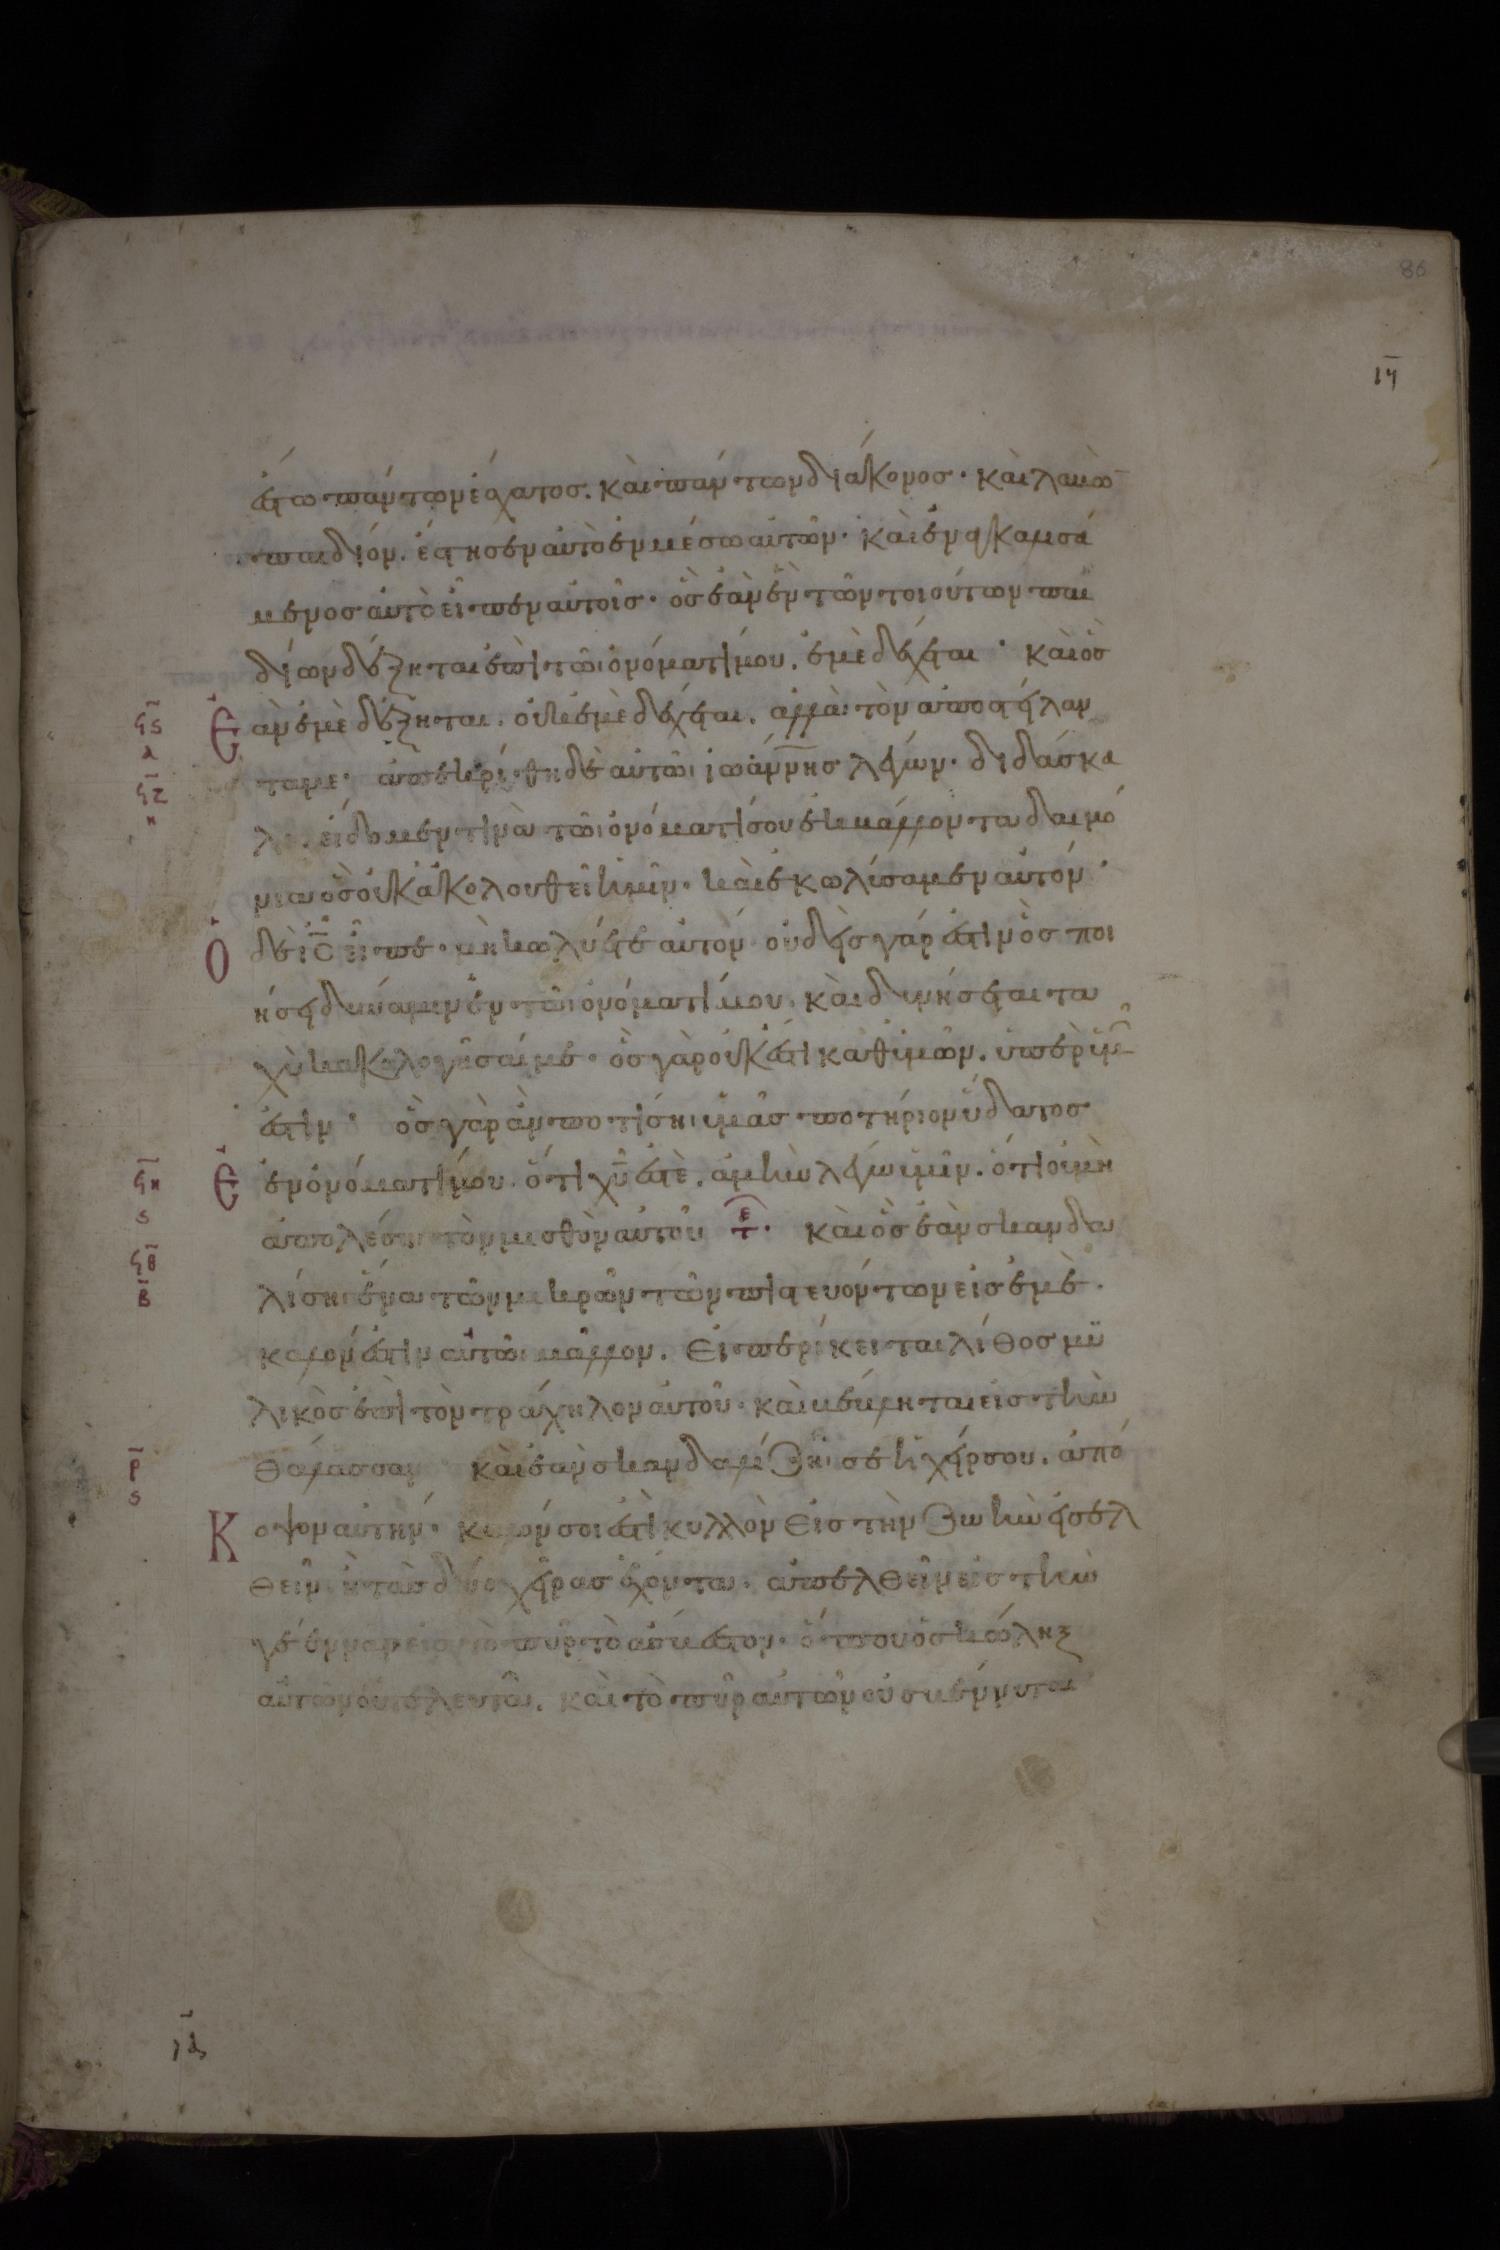 86
ιγ
ἔστω πάντων ἔσχατος. καὶ πάντων διάκονος. καὶ λαβὼ
παιδίον. ἔστησεν αὐτὸ ἐν μέσω αὐτῶν. καὶ ἐναγκαλισά
μενος αὐτὸ εἶπεν αὐτοῖς. ὃς ἐὰν ἓν τῶν τοιούτων παι
δίων δέξηται ἐπὶ τῶι ὀνόματί μου. ἐμὲ δέχεται. καὶ ὃς
ϟϛ
Ε ἂν ἐμὲ δέξηται. οὐκ ἐμὲ δέχεται. ἀλλὰ τὸν ἀποστείλαν
λ
ϟζ
τα με. ἀπεκρίθη δὲ αὐτῶι ἰωάννης λέγων. διδάσκα
η
λε. εἴδομέν τινα τῶι ὀνόματί σου ἐκβάλλοντα δαιμό
νια ὃς οὐκ ἀκολουθεῖ ἡμῖν. καὶ ἐκωλύσαμεν αὐτόν.
Ο δὲ ις εἶπε. μὴ κωλύετε αὐτόν. οὐδεὶς γάρ ἐστιν ὃς ποι
ήσει δύναμιν ἐν τῶι ὀνόματί μου. καὶ δυνήσεται τα
χὺ κακολογῆσαί με. ὃς γὰρ οὐκ ἔστι καθ ἡμῶν. ὑπὲρ ἡμῶν
ἐστιν. ὃς γὰρ ἂν ποτίσηι ὑμᾶς ποτήριον ὕδατος
ϟη
Ε ἐν ὀνόματί μου. ὅτι χῦ ἐστὲ. ἀμὴν λέγω ὑμῖν. ὅτι οὐ μὴ
ϛ
ἀπολέσηι τὸν μισθὸν αὐτοῦ τε. καὶ ὃς ἐὰν σκανδα
ϟθ
β
λίσηι ἕνα τῶν μικρῶν τῶν πιστευόντων εἰς ἐμέ.
καλόν ἐστιν αὐτῶι μᾶλλον. εἰ περίκειται λίθος μυ
λικὸς ἐπὶ τὸν τράχηλον αὐτοῦ. καὶ βέβληται εἰς τὴν
ρ
θάλασσαν καὶ ἐὰν σκανδαλίζηι σε ἡ χείρ σου. ἀπό
ϛ
Κ οψον αὐτήν. καλόν σοι ἐστὶ κυλλὸν εἰς τὴν ζωὴν εἰσελ
θεῖν. ἢ τὰς δύο χεῖρας ἔχοντα. ἀπελθεῖν εἰς τὴν
γέενναν εἰς τὸ πῦρ τὸ ἄσβεστον. ὅπου ὁ σκώληξ
αὐτῶν οὐ τελευτᾶ. καὶ τὸ πῦρ αὐτῶν οὐ σβέννυται
ιδ